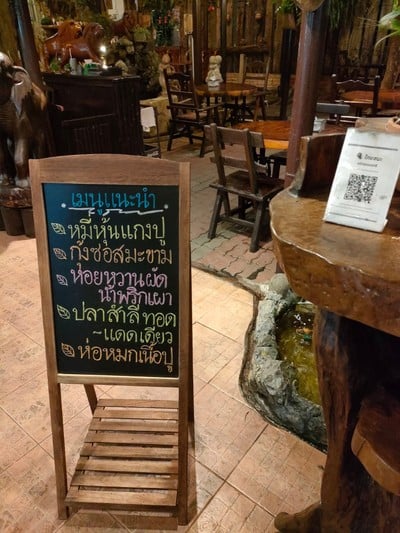 เมนูแนะนำ
หมี่หุ้นแกงปู
กุ้งซอสมะขาม
หอยหวานผัด
น้ำพริกเผา
ปลาสำลีทอด
~แดดเดียว
ห่อหมกเนื้อปู